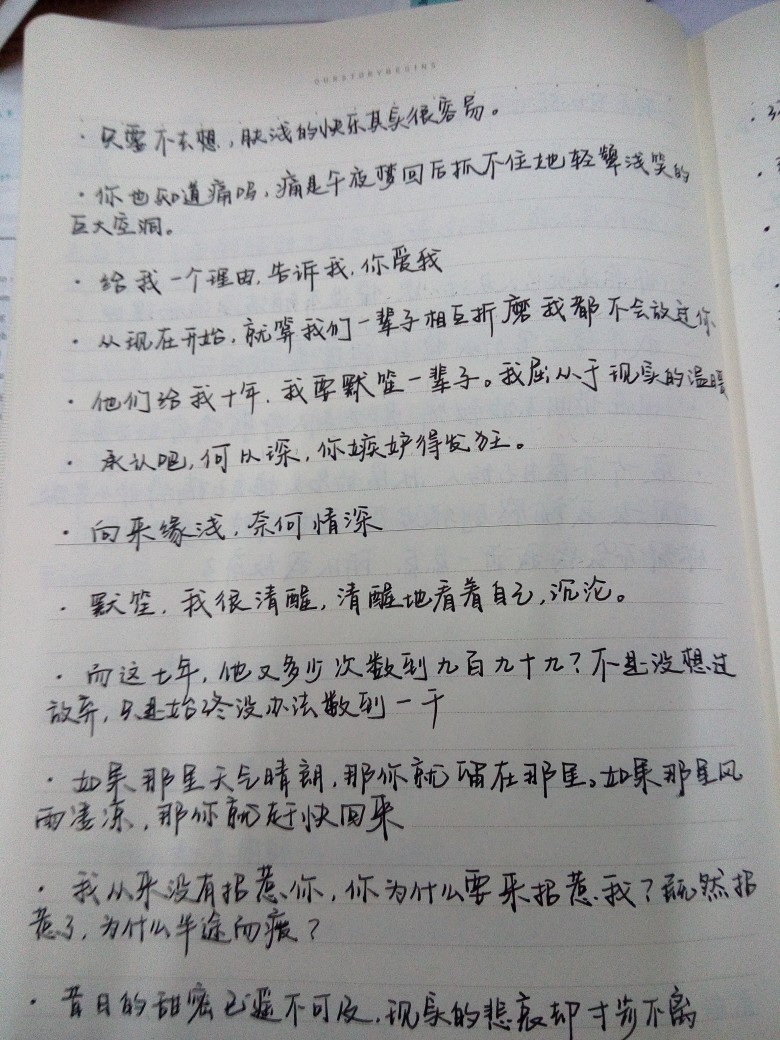 OURSTORYBEGINS
· 只要不去想，肤浅的快乐其实很容易。
· 你也知道痛吗，痛是午夜梦回后抓不住她轻颦浅笑的
巨大空洞。
· 给我一个理由，告诉我，你爱我
· 从现在开始，就算我们一辈子相互折磨我都不会放过你
· 他们给我十年，我要默笙一辈子。我屈从于现实的温暖
· 承认吧，何以琛，你嫉妒得发狂。
· 向来缘浅，奈何情深
· 默笙，我很清醒，清醒地看着自己，沉沦。
· 而这七年，他又多少次数到九百九十九？不是没想过
放弃，只是始终没办法数到一千
· 如果那里天气晴朗，那你就留在那里。如果那里风
雨凄凉，那你就赶快回来
· 我从来没有招惹你，你为什么要来招惹我？既然招
惹了，为什么半途而废？
· 昔日的甜蜜已遥不可及，现实的悲哀却寸步不离